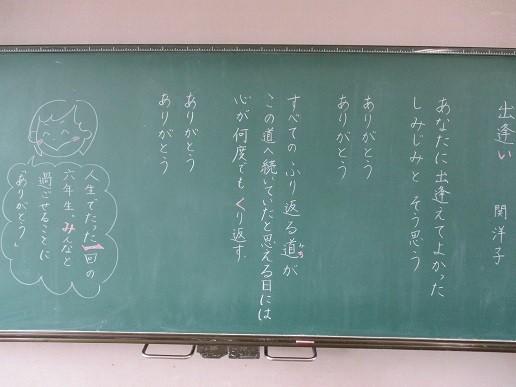 出逢い
関洋子
あなたに出逢えてよかった
しみじみと そう思う
ありがとう
ありがとう
すべての ふり返る道が
みち
この道へ続いていたと思える日には
心が何度でもくり返す
ありがとう
ありがとう
人生でたった一回の
六年生、みんなと
過ごせることに
「ありがとう」